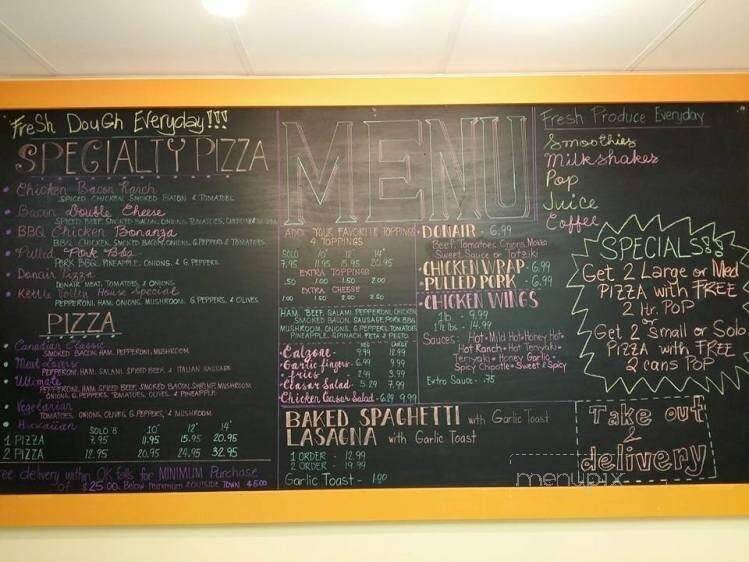 Fresh Dough Everyday!!!
SPECIALTY PIZZA
Chicken Bacon Ranch
SPICED CHICKEN, SMOKED BACON & TOMATOES
Bacon Double Cheese
SPICED BEEF, SMOKED BACON, ONIONS, TOMATOES,
BBQ Chicken Bonanza
BBQ CHICKEN, SMOKED BACON, ONIONS, G.PEPPERS & TOMATOES
Pulled Pork BBQ
PORK BBQ, PINEAPPLE, ONIONS, & G.PEPPERS
Donair Pizza
DONAIR MEAT, TOMATOES, & ONIONS
Kettle Valley House Special
PEPPERONI, HAM, ONIONS, MUSHROOM, G.PEPPERS, & OLIVES
PIZZA
Canadian Classic
SMOKED BACON, HAM, PEPPERONI, MUSHROOM
Meat Lovers
PEPPERONI, HAM, SALAMI, SPICED BEEF & ITALIAN SAUSAGE
Ultimate
PEPPERONI, HAM, SPICED BEEF, SMOKED BACON, SHRIMP, MUSHROOM
ONIONS, G.PEPPERS, TOMATOES, OLIVES, & PINEAPPLE
Vegetarian
TOMATOES, ONIONS, OLIVES, G.PEPPERS, & MUSHROOM
Hawaiian
SOLO 8" 10" 12" 14"
1 PIZZA 7.95 11.95 15.95 20.95
2 PIZZA 12.95 20.95 24.95 32.95
ree delivery within OK falls for MINIMUM Purchase
of $25.00. Below minimum & OUTSIDE TOWN $5.00
MENU
ADD YOUR FAVORITE TOPPINGS
4 TOPPINGS
SOLO 10" 12" 14"
7.95 11.95 15.95 20.95
EXTRA TOPPINGS
.50 1.00 1.50 2.00
EXTRA CHEESE
1.00 1.50 2.00 2.50
HAM, BEEF, SALAMI, PEPPERONI, CHICKEN
SMOKED BACON, SAUSAGE, PORK BBQ
MUSHROOM, ONIONS, G.PEPPERS, TOMATOES
PINEAPPLE, SPINACH, FETA & PESTO
Calzone 9.99 12.99
Garlic fingers 6.99 9.99
fries 2.99 3.99
Ceasar Salad 5.29 7.99
Chicken Ceasar Salad 6.29 9.99
DONAIR - 6.99
Beef, Tomatoes, Onions, Mozza
Sweet Sauce or Tatziki
CHICKEN WRAP - 6.99
PULLED PORK - 6.99
CHICKEN WINGS
1 lb. - 9.99
1½ lbs - 14.99
Sauces: Hot • Mild Hot • Honey Hot
Hot Ranch • Hot Teriyaki
Teriyaki • Honey Garlic
Spicy Chipotle • Sweet & Spicy
Extra Sauce - .75
BAKED SPAGHETTI with Garlic Toast
LASAGNA with Garlic Toast
1 ORDER - 12.99
2 ORDER - 19.99
Garlic Toast - 1.00
Fresh Produce Everyday
Smoothies
Milkshakes
Pop
Juice
Coffee
SPECIALS!!
Get 2 Large or Med
PIZZA with FREE
2 ltr. POP
Get 2 Small or Solo
PIZZA with FREE
2 cans POP
Take out
2
delivery
menupix